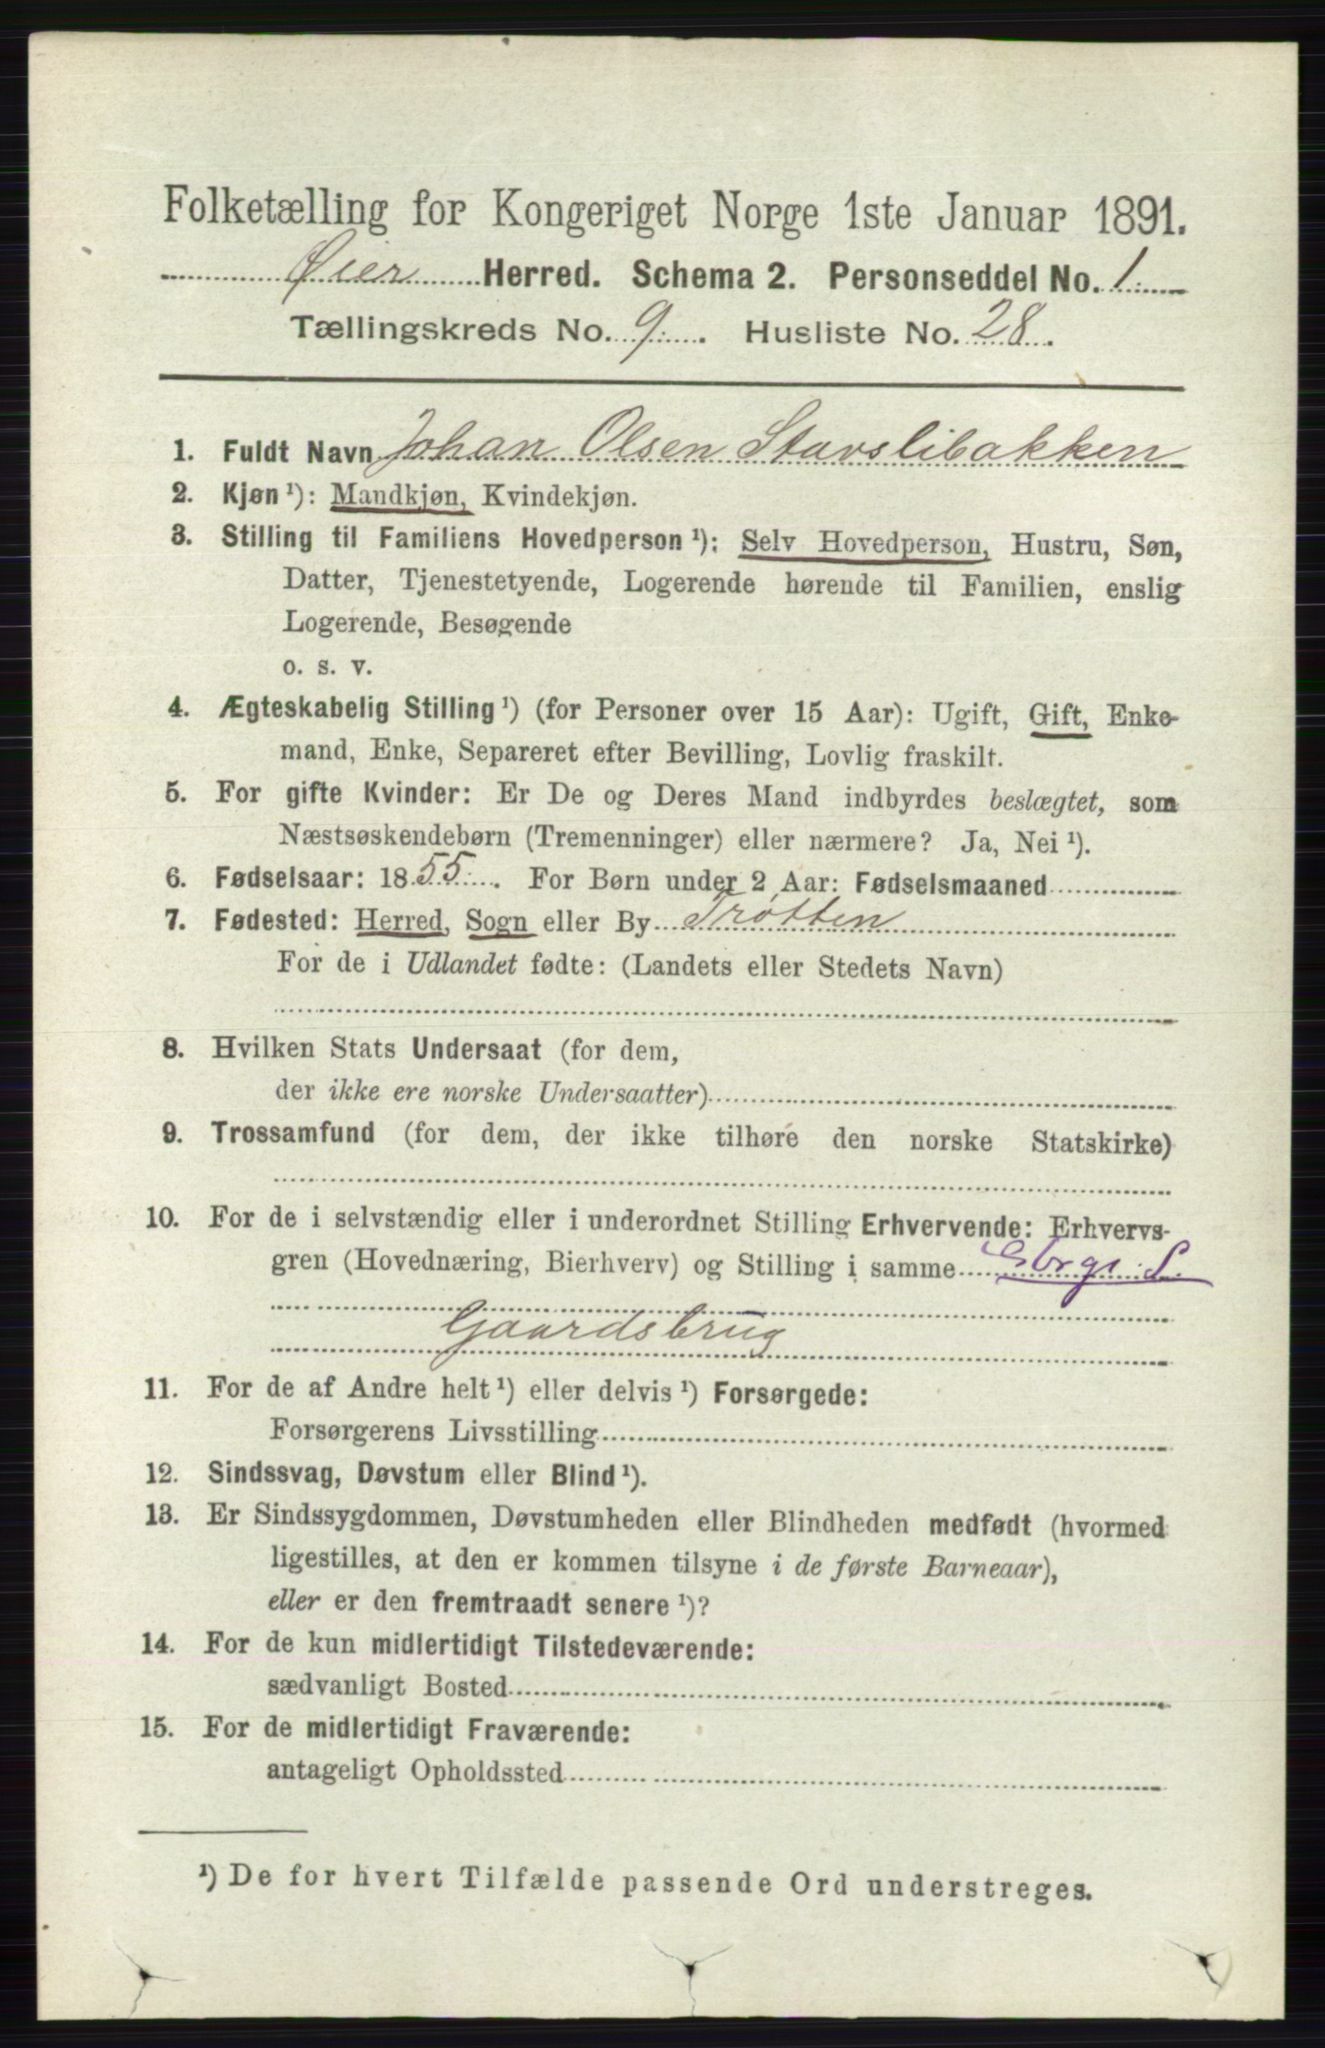 Folketælling for Kongeriget Norge 1ste Januar 1891.
Øier Herred. Schema 2. Personseddel No. 1
Tællingskreds No. 9. Husliste No. 28.
1. Fuldt Navn Johan Olsen Stavslibakken
2. Kjøn¹): Mandkjøn, Kvindekjøn.
3. Stilling til Familiens Hovedperson¹): Selv Hovedperson, Hustru, Søn,
Datter, Tjenestetyende, Logerende hørende til Familien, enslig
Logerende, Besøgende
o. s. v.
4. Ægteskabelig Stilling¹) (for Personer over 15 Aar): Ugift, Gift, Enke-
mand, Enke, Separeret efter Bevilling, Lovlig fraskilt.
5. For gifte Kvinder: Er De og Deres Mand indbyrdes beslægtet, som
Næstsøskendebørn (Tremenninger) eller nærmere? Ja, Nei¹).
6. Fødselsaar: 1855. For Børn under 2 Aar: Fødselsmaaned
7. Fødested: Herred, Sogn eller By Trøtten
For de i Udlandet fødte: (Landets eller Stedets Navn)
8. Hvilken Stats Undersaat (for dem,
der ikke ere norske Undersaatter)
9. Trossamfund (for dem, der ikke tilhøre den norske Statskirke)
10. For de i selvstændig eller i underordnet Stilling Erhvervende: Erhvervs-
gren (Hovednæring, Bierhverv) og Stilling i samme
Gaardsbrug
11. For de af Andre helt¹) eller delvis¹) Forsørgede:
Forsørgerens Livsstilling
12. Sindssvag, Døvstum eller Blind¹).
13. Er Sindssygdommen, Døvstumheden eller Blindheden medfødt (hvormed
ligestilles, at den er kommen tilsyne i de første Barneaar),
eller er den fremtraadt senere¹)?
14. For de kun midlertidigt Tilstedeværende:
sædvanligt Bosted
15. For de midlertidigt Fraværende:
antageligt Opholdssted
¹) De for hvert Tilfælde passende Ord understreges.